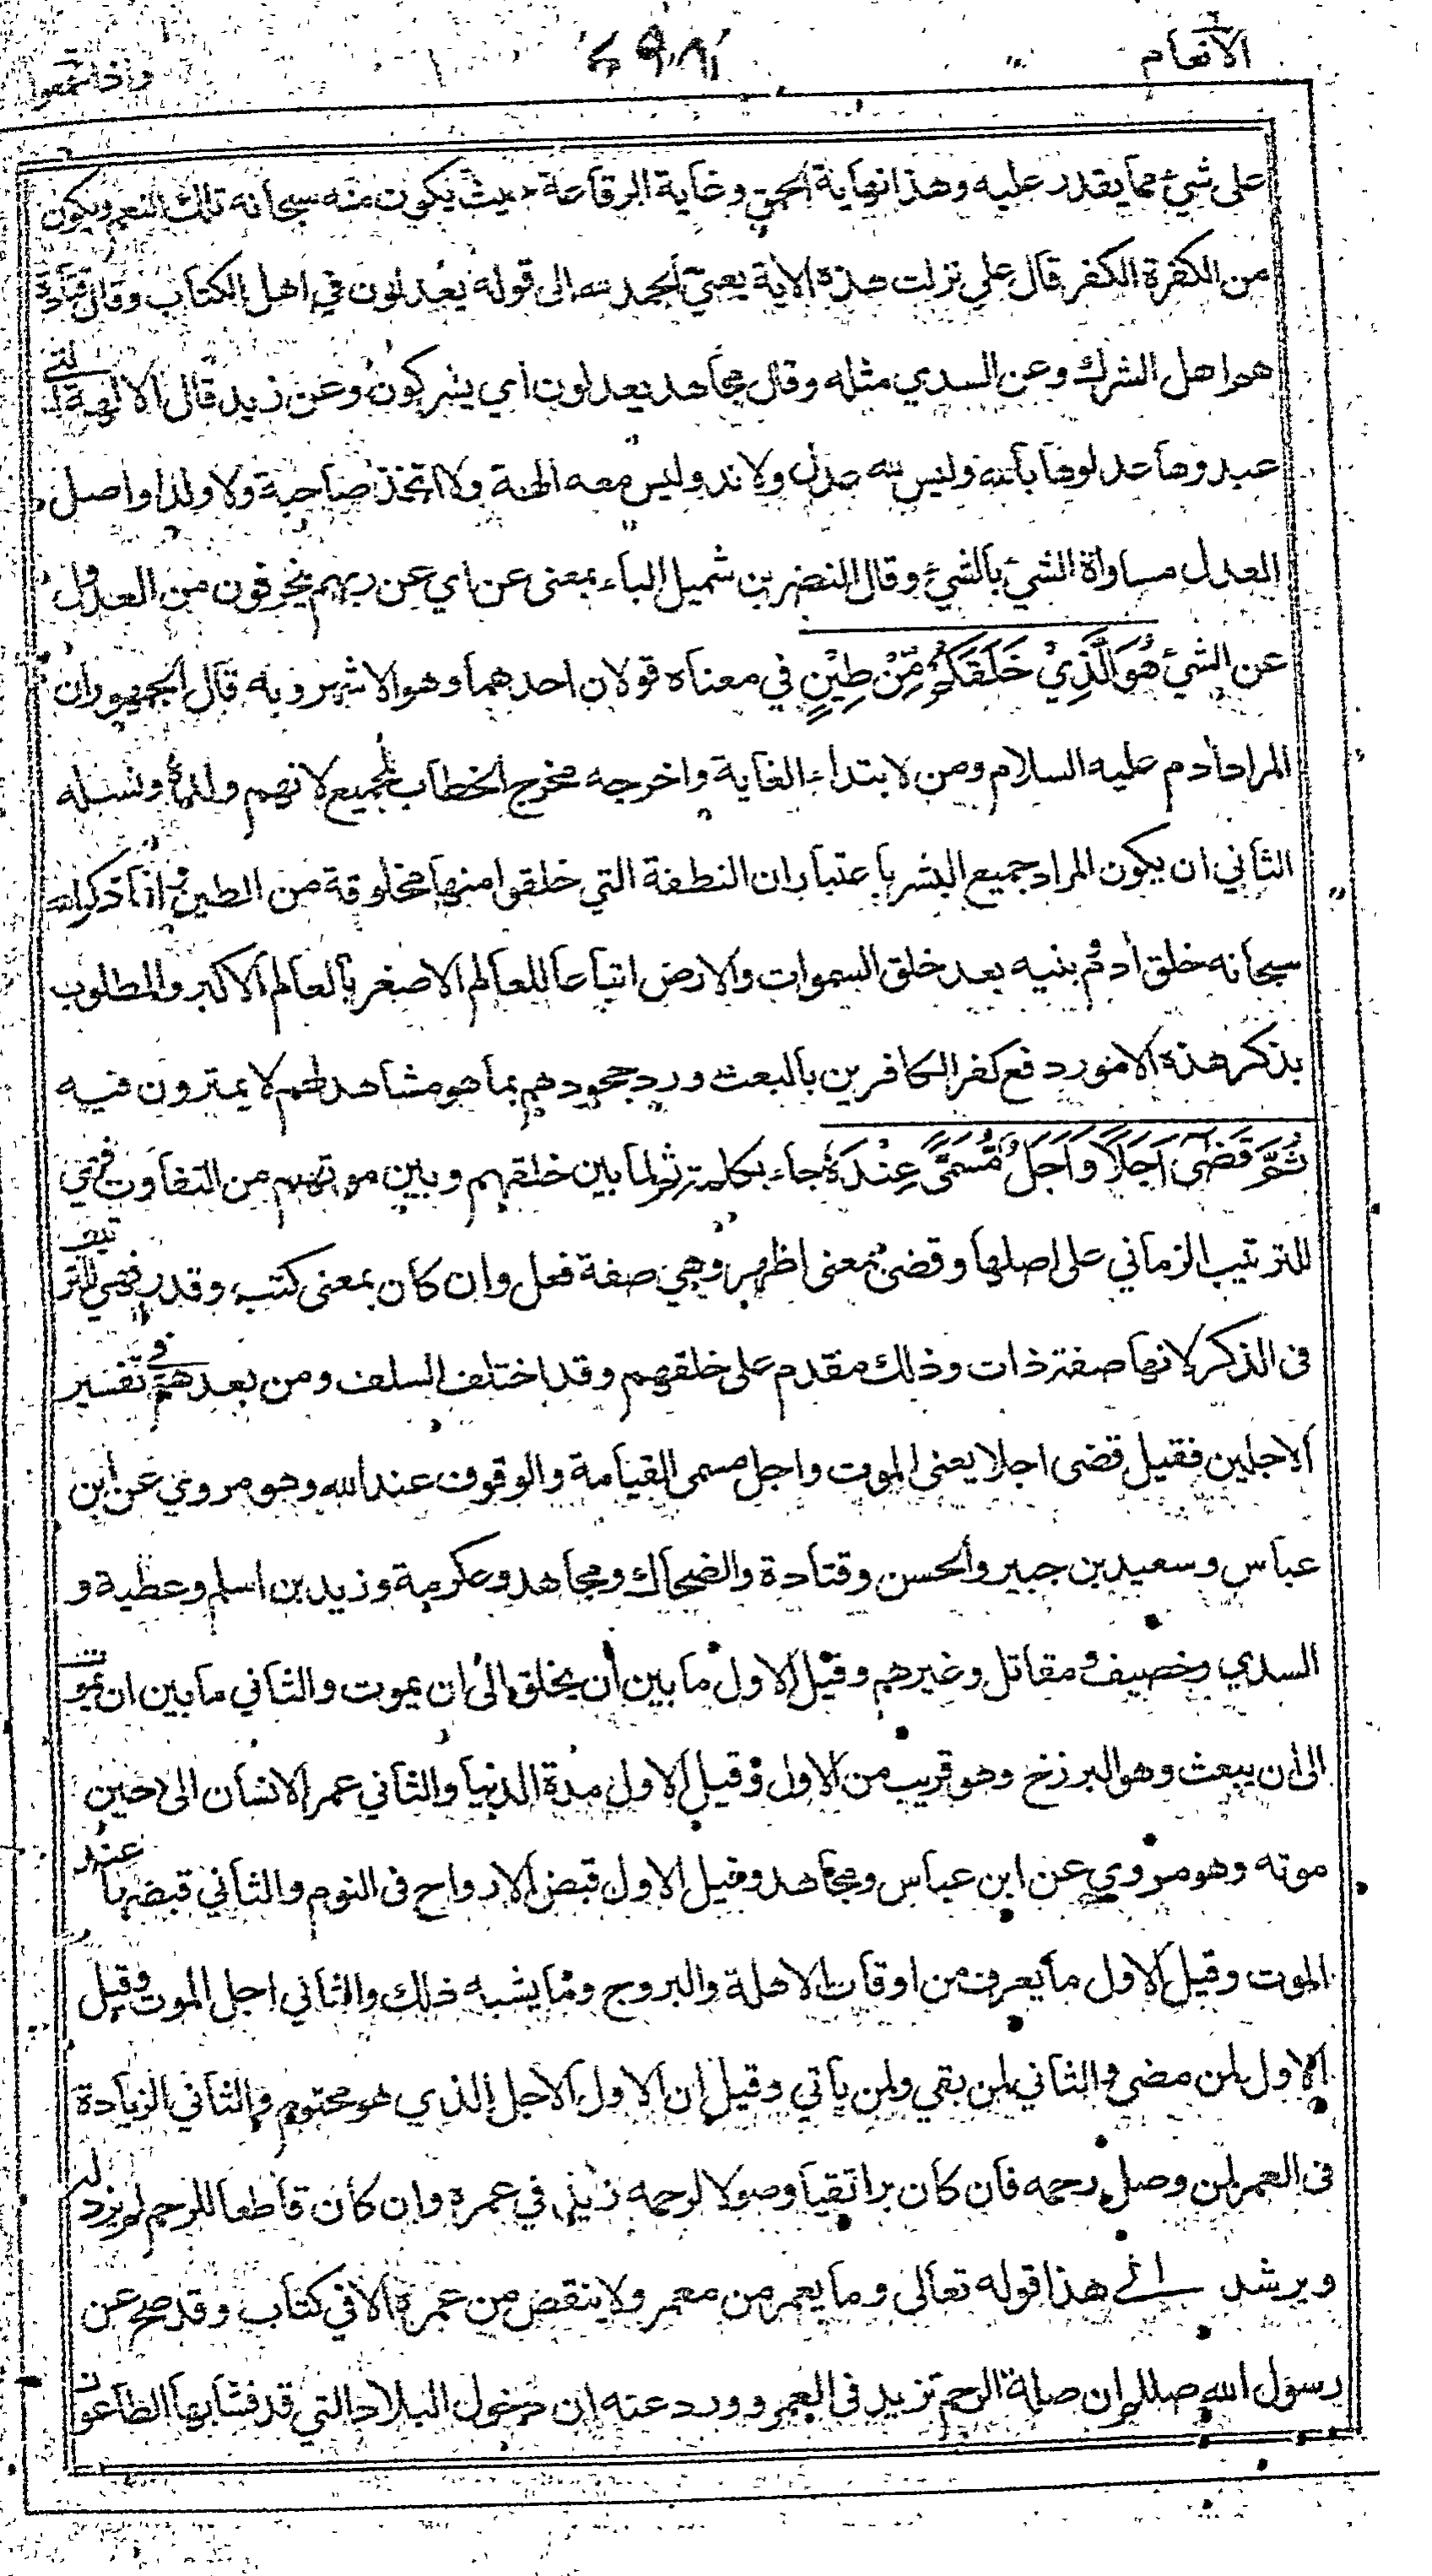 الانعام
واذاسمعوا
على شيئ مما يقدر عليه وهذا نهاية الحمق وغاية الرقاعة حيث يكون منه سبحانه تلك النعم ويكون
من الكفرة الكفر قال علي نزلت هذه الاية يعني الحمد لله الى قوله يعدلون في اهل الكتاب وقال قتادة
هم اهل الشرك وعن السدي مثله وقال مجاهد يعدلون اي يشركون وعن زيد قال الالهة التي
عبدوها عدلوها بالله وليس لله عدل ولا ند وليس معه الهة ولا اتخذ صاحبة ولا ولدا واصل
العدل مساواة الشيئ بالشيئ وقال النضر بن شميل الباء بمعنى عن اي عن ربهم ينحرفون من العدول
عن الشيئ هُوَ الَّذِيْ خَلَقَكُمْ مِّنْ طِيْنٍ في معناه قولان احدهما وهو الاشهر وبه قال الجمهور ان
المراد أدم عليه السلام ومن لابتداء الغاية واخرجه مخرج الخطاب للجميع لانهم ولده ونسله
الثاني ان يكون المراد جميع البشر باعتبار ان النطفة التي خلقوا منها مخلوقة من الطين وانما ذكر الله
سبحانه خلق أدم وبنيه بعد خلق السموات والارض اتباعا للعالم الاصغر بالعالم الاكبر والمطلوب
بذكر هذه الامور دفع كفر الكافرين بالبعث ورد جحودهم بما هو مشاهد لهم لا يمترون فيه
ثُمَّ قَضٰى اَجَلًا وَاَجَلٌ مُّسَمًّى عِنْدَهٗ جاء بكلمة ثم لما بين خلقهم وبين موتهم من التفاوت فهي
للترتيب الزماني على اصلها وقضى بمعنى اظهر وهي صفة فعل وان كان بمعنى كتب وقدر فهي للترتيب
فى الذكر لانها صفة ذات وذلك مقدم على خلقهم وقد اختلف السلف ومن بعدهم في تفسير
الاجلين فقيل قضى اجلا يعنى الموت واجل مسمى القيامة والوقوف عند الله وهو مروي عن ابن
عباس وسعيد بن جبير والحسن وقتادة والضحاك ومجاهد وعكرمة وزيد بن اسلم وعطية و
السدي وخصيف ومقاتل وغيرهم وقيل الاول ما بين أن يخلق الى ان يموت والثاني ما بين ان يموت
الى ان يبعث وهو البرزخ وهو قريب من الاول وقيل الاول مدة الدنيا والثاني عمر الانسان الى حين
موته وهو مروي عن ابن عباس ومجاهد وقيل الاول قبض الارواح فى النوم والثاني قبضها عند
الموت وقيل الاول ما يعرف من اوقات الاهلة والبروج وما يشبه ذلك والثاني اجل الموت وقيل
الاول لمن مضى والثاني لمن بقي ولمن يأتي وقيل ان الاول الاجل الذي هو محتوم والثاني الزيادة
فى العمر لمن وصل رحمه فان كان برا تقيا وصولا لرحمه زيد في عمره وان كان قاطعا للرحم لم يزد له
ويرشد الى هذا قوله تعالى وما يعمر من معمر ولا ينقص من عمره الا في كتاب وقد صح عن
رسول الله صللم ان صلة الرحم تزيد فى العمر وورد عنه ان دخول البلاد التي قد فشا بها الطاعون